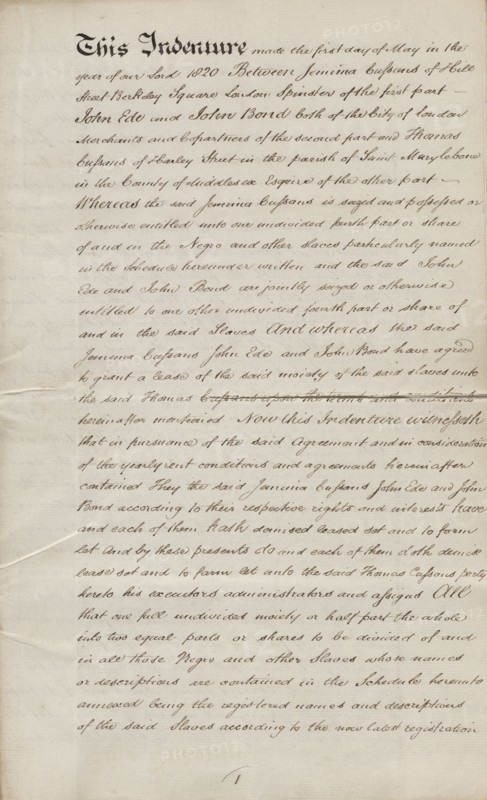 This Indenture made the first day of May in the
year of our Lord 1820 Between Jemima Cussans of Hill
Street Berkeley Square London Spinster of the first part —
John Ede and John Bond both of the City of London
Merchants and Copartners of the second part and Thomas
Cussans of Harley Street in the parish of Saint Marylebone
in the County of Middlesex Esquire of the other part —
Whereas the said Jemima Cussans is seized and possessed or
otherwise entitled unto one undivided fourth part or share
of and in the Negro and other slaves particularly named
in the Schedule hereunder written and the said John
Ede and John Bond are jointly seized or otherwise
entitled to one other undivided fourth part or share of
and in the said Slaves And whereas the said
Jemima Cussans John Ede and John Bond have agreed
to grant a lease of the said moiety of the said slaves unto
the said Thomas Cussans upon the terms and conditions
hereinafter mentioned Now this Indenture witnesseth
that in pursuance of the said Agreement and in consideration
of the yearly rent conditions and agreements hereinafter
contained They the said Jemima Cussans John Ede and John
Bond according to their respective rights and interests have
and each of them hath demised leased set and to farm
let And by these presents do and each of them doth demise
lease set and to farm let unto the said Thomas Cussans party
hereto his executors administrators and assigns All
that one full undivided moiety or half part the whole
into two equal parts or shares to be divided of and
in all those Negro and other Slaves whose names
or descriptions are contained in the Schedule hereunto
annexed being the registered names and descriptions
of the said Slaves according to the now latest registration
1